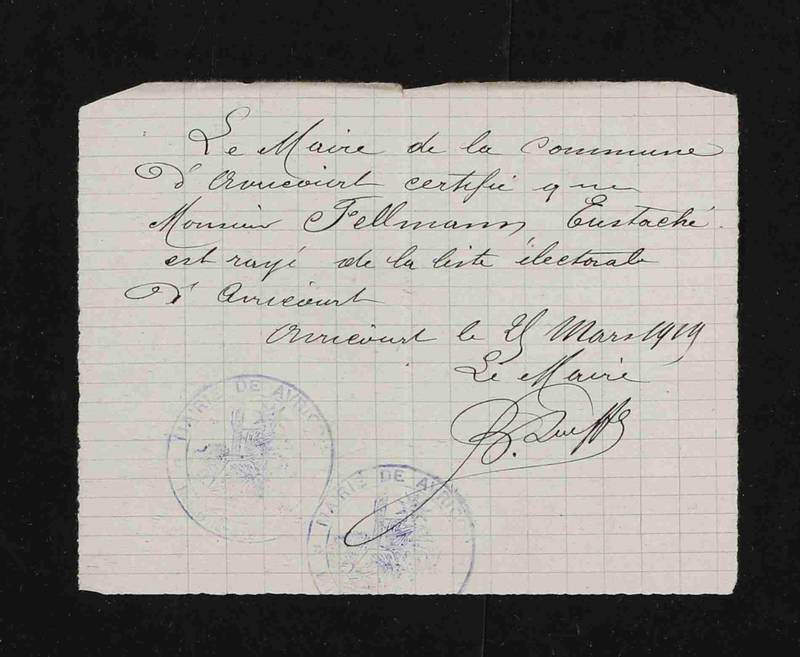 Le Maire de la commune
d'Avricourt certifie que
Monsieur Fellmann Eustache
est rayé de la liste électorale
d'Avricourt
Avricourt le Mars 1919
Le Maire
MAIRIE DE AVRIC
MAIRIE DE AVRIC